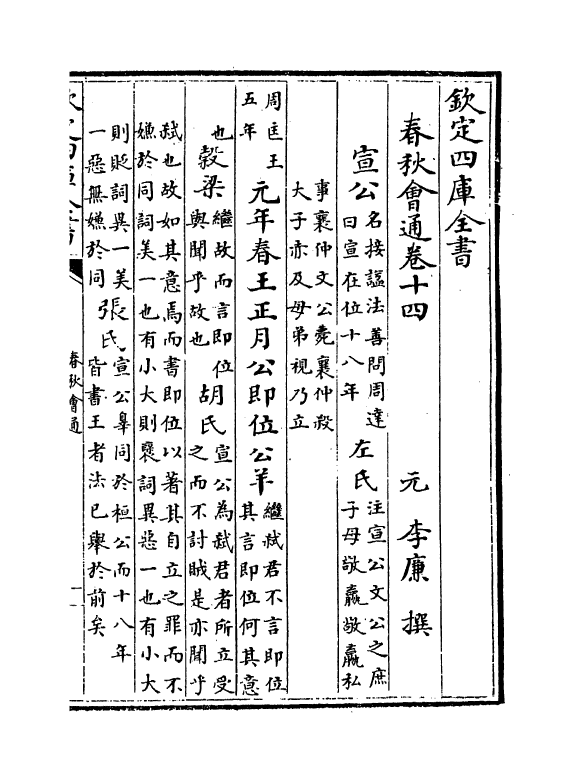 欽定四庫全書
春秋會通卷十四 元 李廉 撰
宣公 名接謚法善問周達
曰宣在位十八年 左氏 注宣公文公之庶
子母敬嬴敬嬴私
事襄仲文公薨襄仲殺
大子赤及母弟視乃立
周匡王
五年 元年春王正月公即位公羊 繼弑君不言即位
其言即位何其意
也榖梁 繼故而言即位
與聞乎故也 胡氏 宣公為弑君者所立受
之而不討賊是亦聞乎
弑也故如其意焉而書即位以著其自立之罪而不
嫌於同詞美一也有小大則襃詞異惡一也有小大
則貶詞異一美
一惡無嫌於同 張氏 宣公辠同於桓公而十八年
皆書王者法已舉於前矣
春秋會通
一